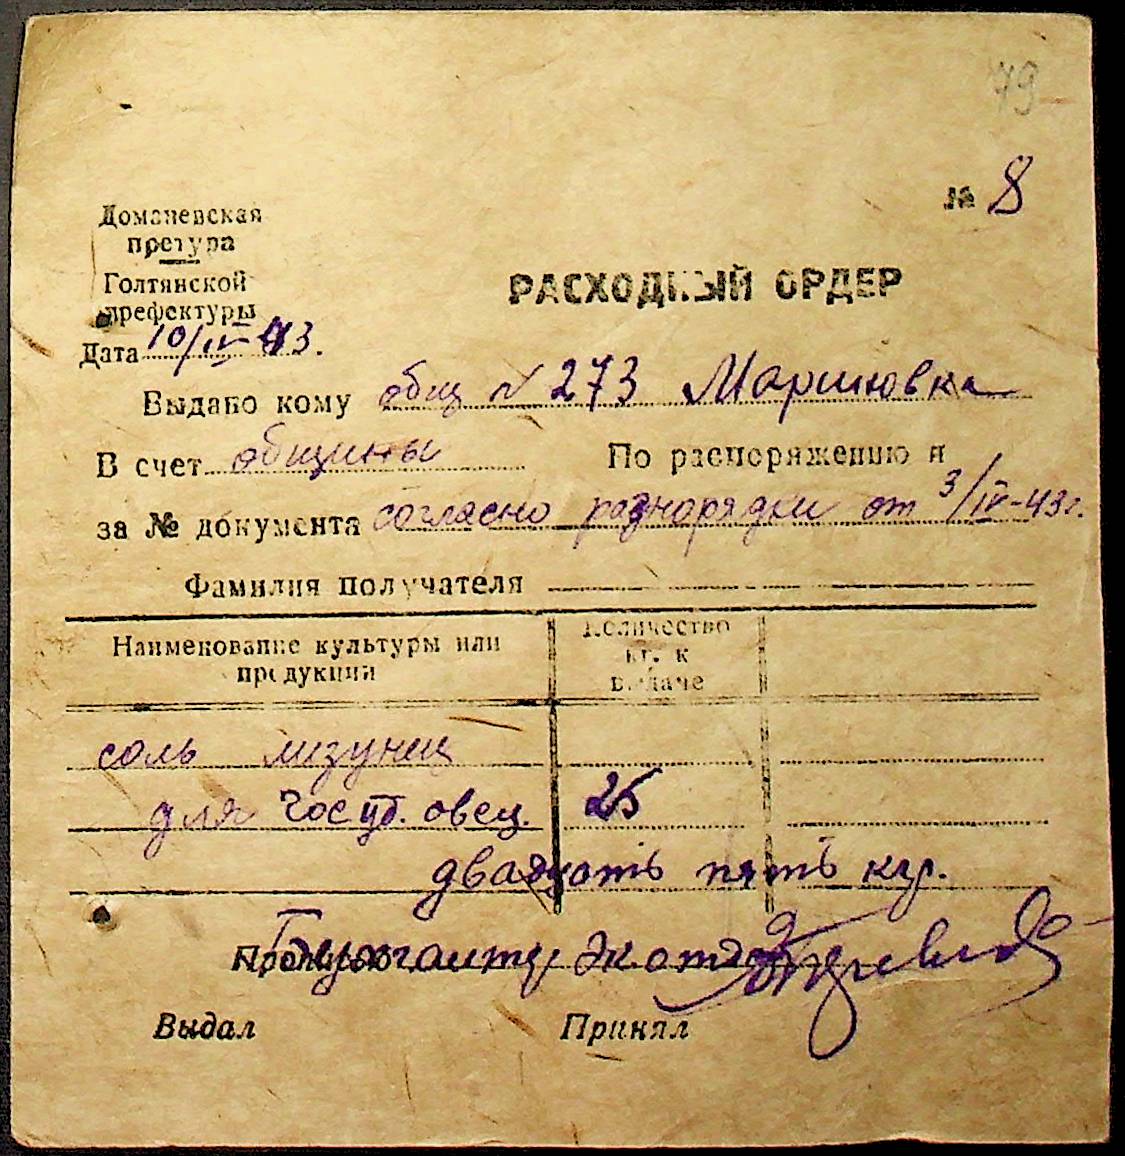 79
№ 8
Доманевская
претура
Голтянской
префектуры
РАСХОДНЫЙ ОРДЕР
Дата 10/IV-43.
Выдано кому общ N 273 Мариновка
В счет общины По распоряжению и
за № документа согласно разнорядки от 3/IV-43г.
Фамилия получателя
Наименование культуры или продукции
Количество кг. к выдаче
соль лизунец
для госуд. овец. 25
двадцать пять кгр.
Бухгалтер
Выдал Принял